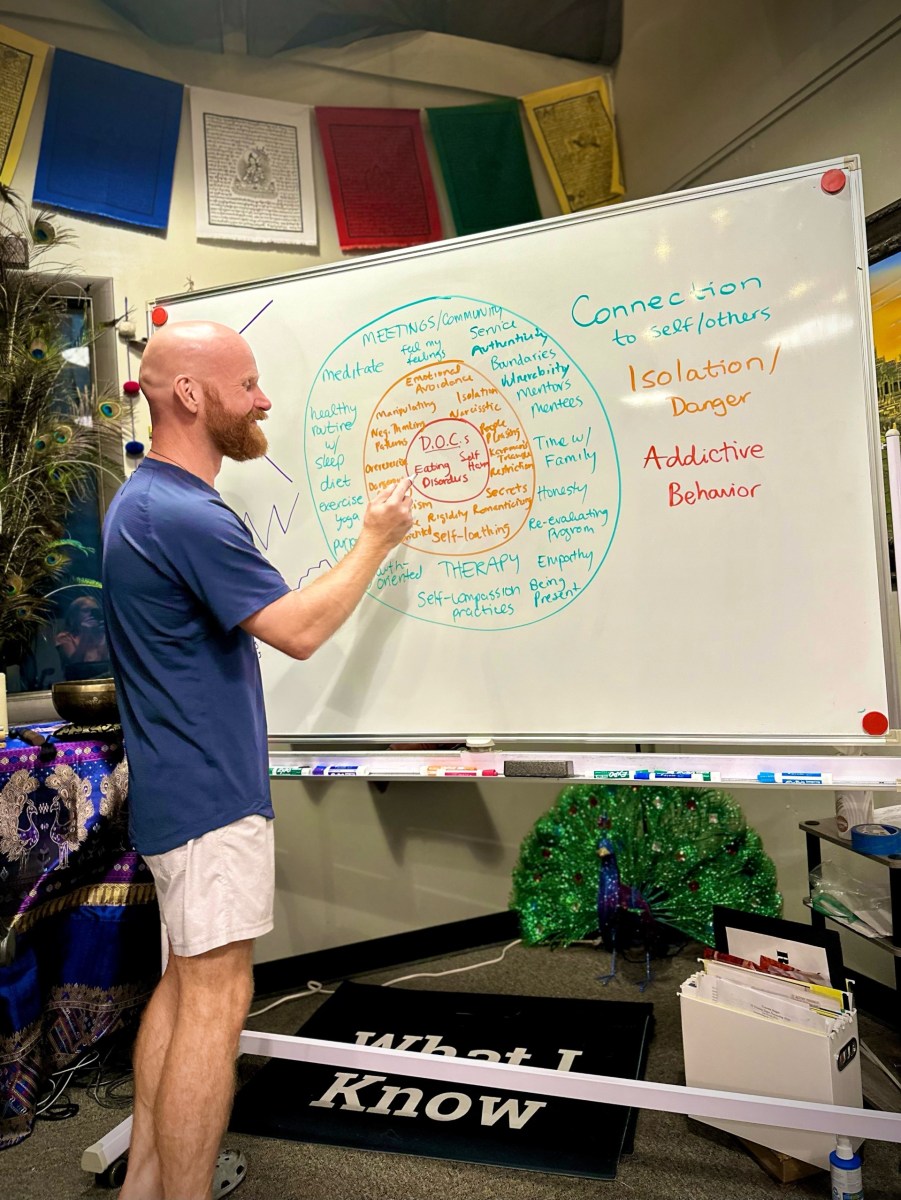 MEETINGS/COMMUNITY
Service
feel my
feelings
Authenticity
meditate
Boundaries
Vulnerability
Mentors
Mentees
healthy
routine
w/
sleep
diet
exercise
yoga
Time w/
Family
Honesty
Re-evaluating
Program
Empathy
Being
Present
THERAPY
oriented
Self-compassion
practices
Emotional
Avoidance
Manipulating
Isolation
Narcisstic
Neg. Thinking
Patterns
People
Pleasing
Karpman's
Triangle
Restriction
Secrets
Rigidity Romanticizing
Self-loathing
D.O.C.s
Eating
Disorders
Self
Harm
Connection
to self/others
Isolation/
Danger
Addictive
Behavior
What I
Know
EXPO